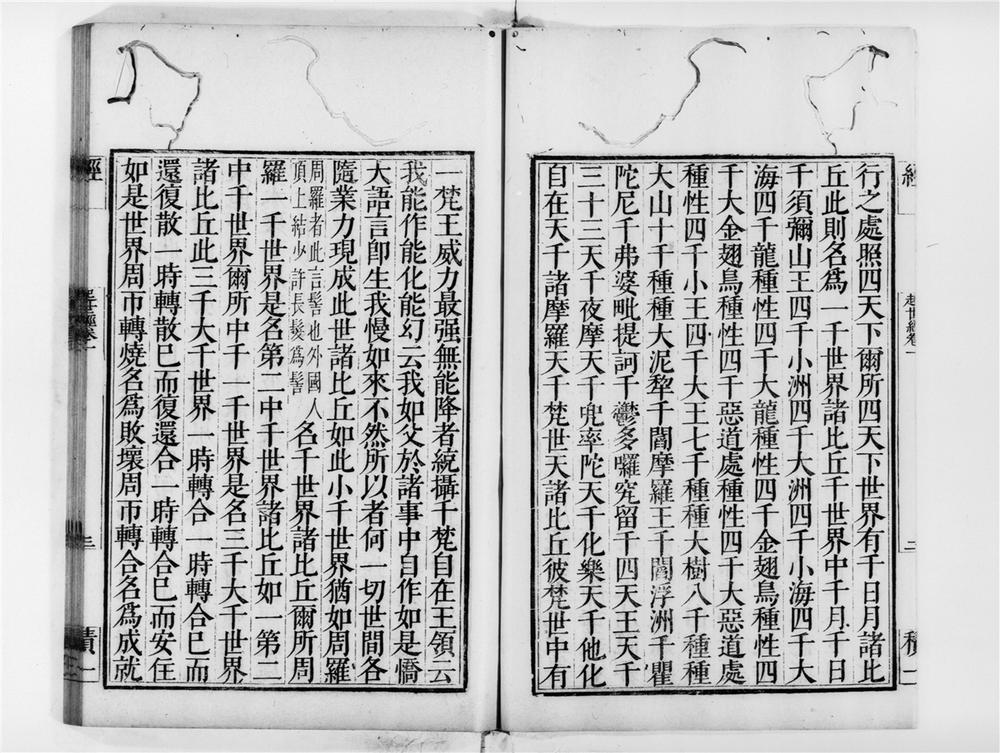 經
起世經卷一
二
積一
行之處照四天下爾所四天下世界有千日月諸比
丘此則名爲一千世界諸比丘千世界中千月千日
千須彌山王四千小洲四千大洲四千小海四千大
海四千龍種性四千大龍種性四千金翅鳥種性四
千大金翅鳥種性四千惡道處種性四千大惡道處
種性四千小王四千大王七千種種大樹八千種種
大山十千種種大泥犂千閻摩羅王千閻浮洲千瞿
陀尼千弗婆毗提訶千鬱多囉究留千四天王天千
三十三天千夜摩天千兜率陀天千化樂天千他化
自在天千諸摩羅天千梵世天諸比丘彼梵世中有
一梵王威力最强無能降者統攝千梵自在王領云
我能作能化能幻云我如父於諸事中自作如是憍
大語言卽生我慢如來不然所以者何一切世間各
隨業力現成此世諸比丘如此小千世界猶如周羅
周羅者此言髻也外國人
頂上結少許長髮爲髻
名千世界諸比丘爾所周
羅一千世界是名第二中千世界諸比丘如一第二
中千世界爾所中千一千世界是名三千大千世界
諸比丘此三千大千世界一時轉合一時轉合已而
還復散一時轉散已而復還合一時轉合已而安住
如是世界周帀轉燒名爲敗壞周帀轉合名爲成就
經
起世經卷一
三
積一